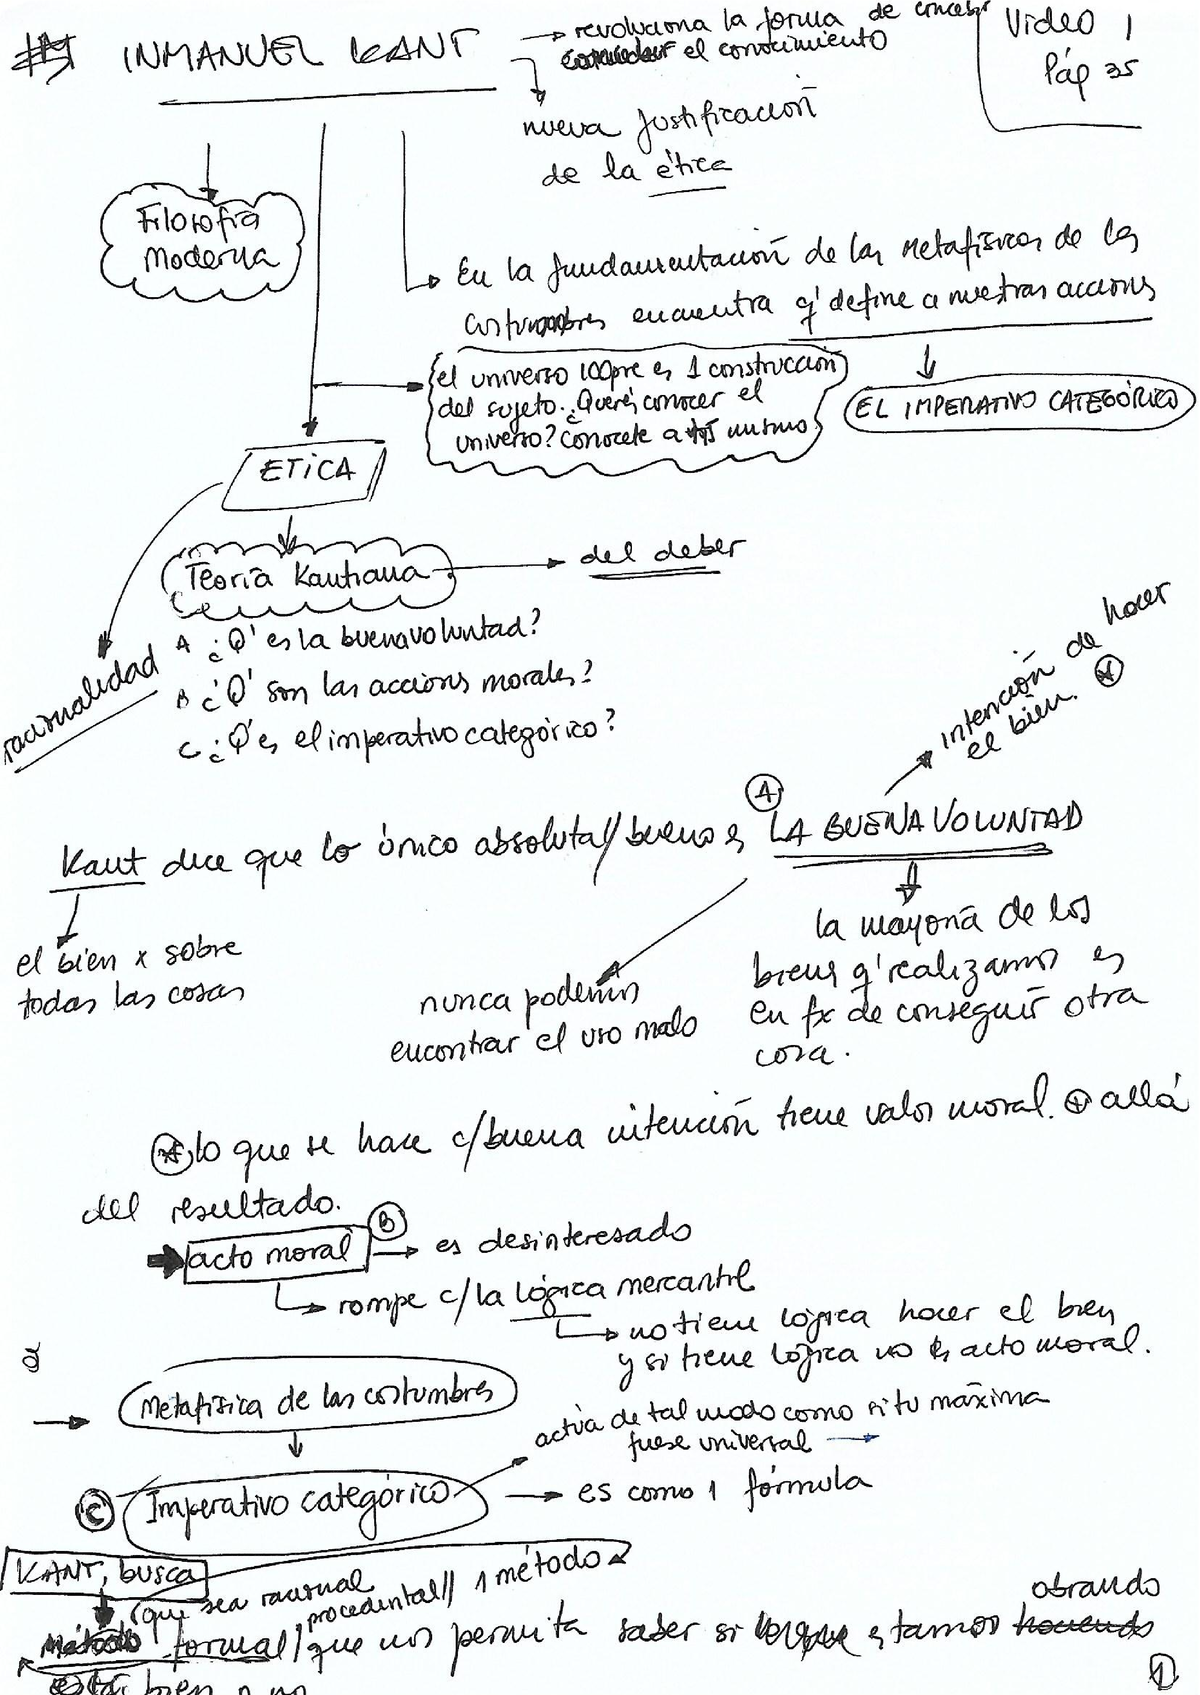 INMANUEL KANT
→ revoluciona la forma de concebir
el conocimiento
Video 1
Pág 35
nueva justificación
de la ética
Filosofía
Moderna
En la fundamentación de las Metafísicas de las
costumbres encuentra q' define a nuestras accions
el universo 100pre es 1 construcción
del sujeto. ¿Querés conocer el
universo? Conocete a mismo
EL IMPERATIVO CATEGÓRICO
ETICA
Teoría Kantiana → del deber
racionalidad
A ¿Q' es la buena voluntad?
B ¿Q' son las accions morales?
C ¿Q' es el imperativo categórico?
intención de hacer
el bien. *
A
Kant dice que lo único absoluta// bueno es LA BUENA VOLUNTAD
el bien x sobre
todas las cosas
nunca podemos
encontrar el uso malo
la mayoría de los
biens q' realizamos es
en fx de conseguir otra
cosa.
* lo que se hace c/buena intención tiene valor moral. + allá
del resultado.
acto moral B → es desinteresado
→ rompe c/ la lógica mercantil
→ no tiene lógica hacer el bien
y si tiene lógica no es acto moral.
→ Metafísica de las costumbres
actúa de tal modo como si tu máxima
fuese universal →
C Imperativo categórico → es como 1 fórmula
KANT, busca
(que sea racional
procedental// 1 método
Método formal/ que nos permita saber si estamos hacendo
obrando
bien o no
1